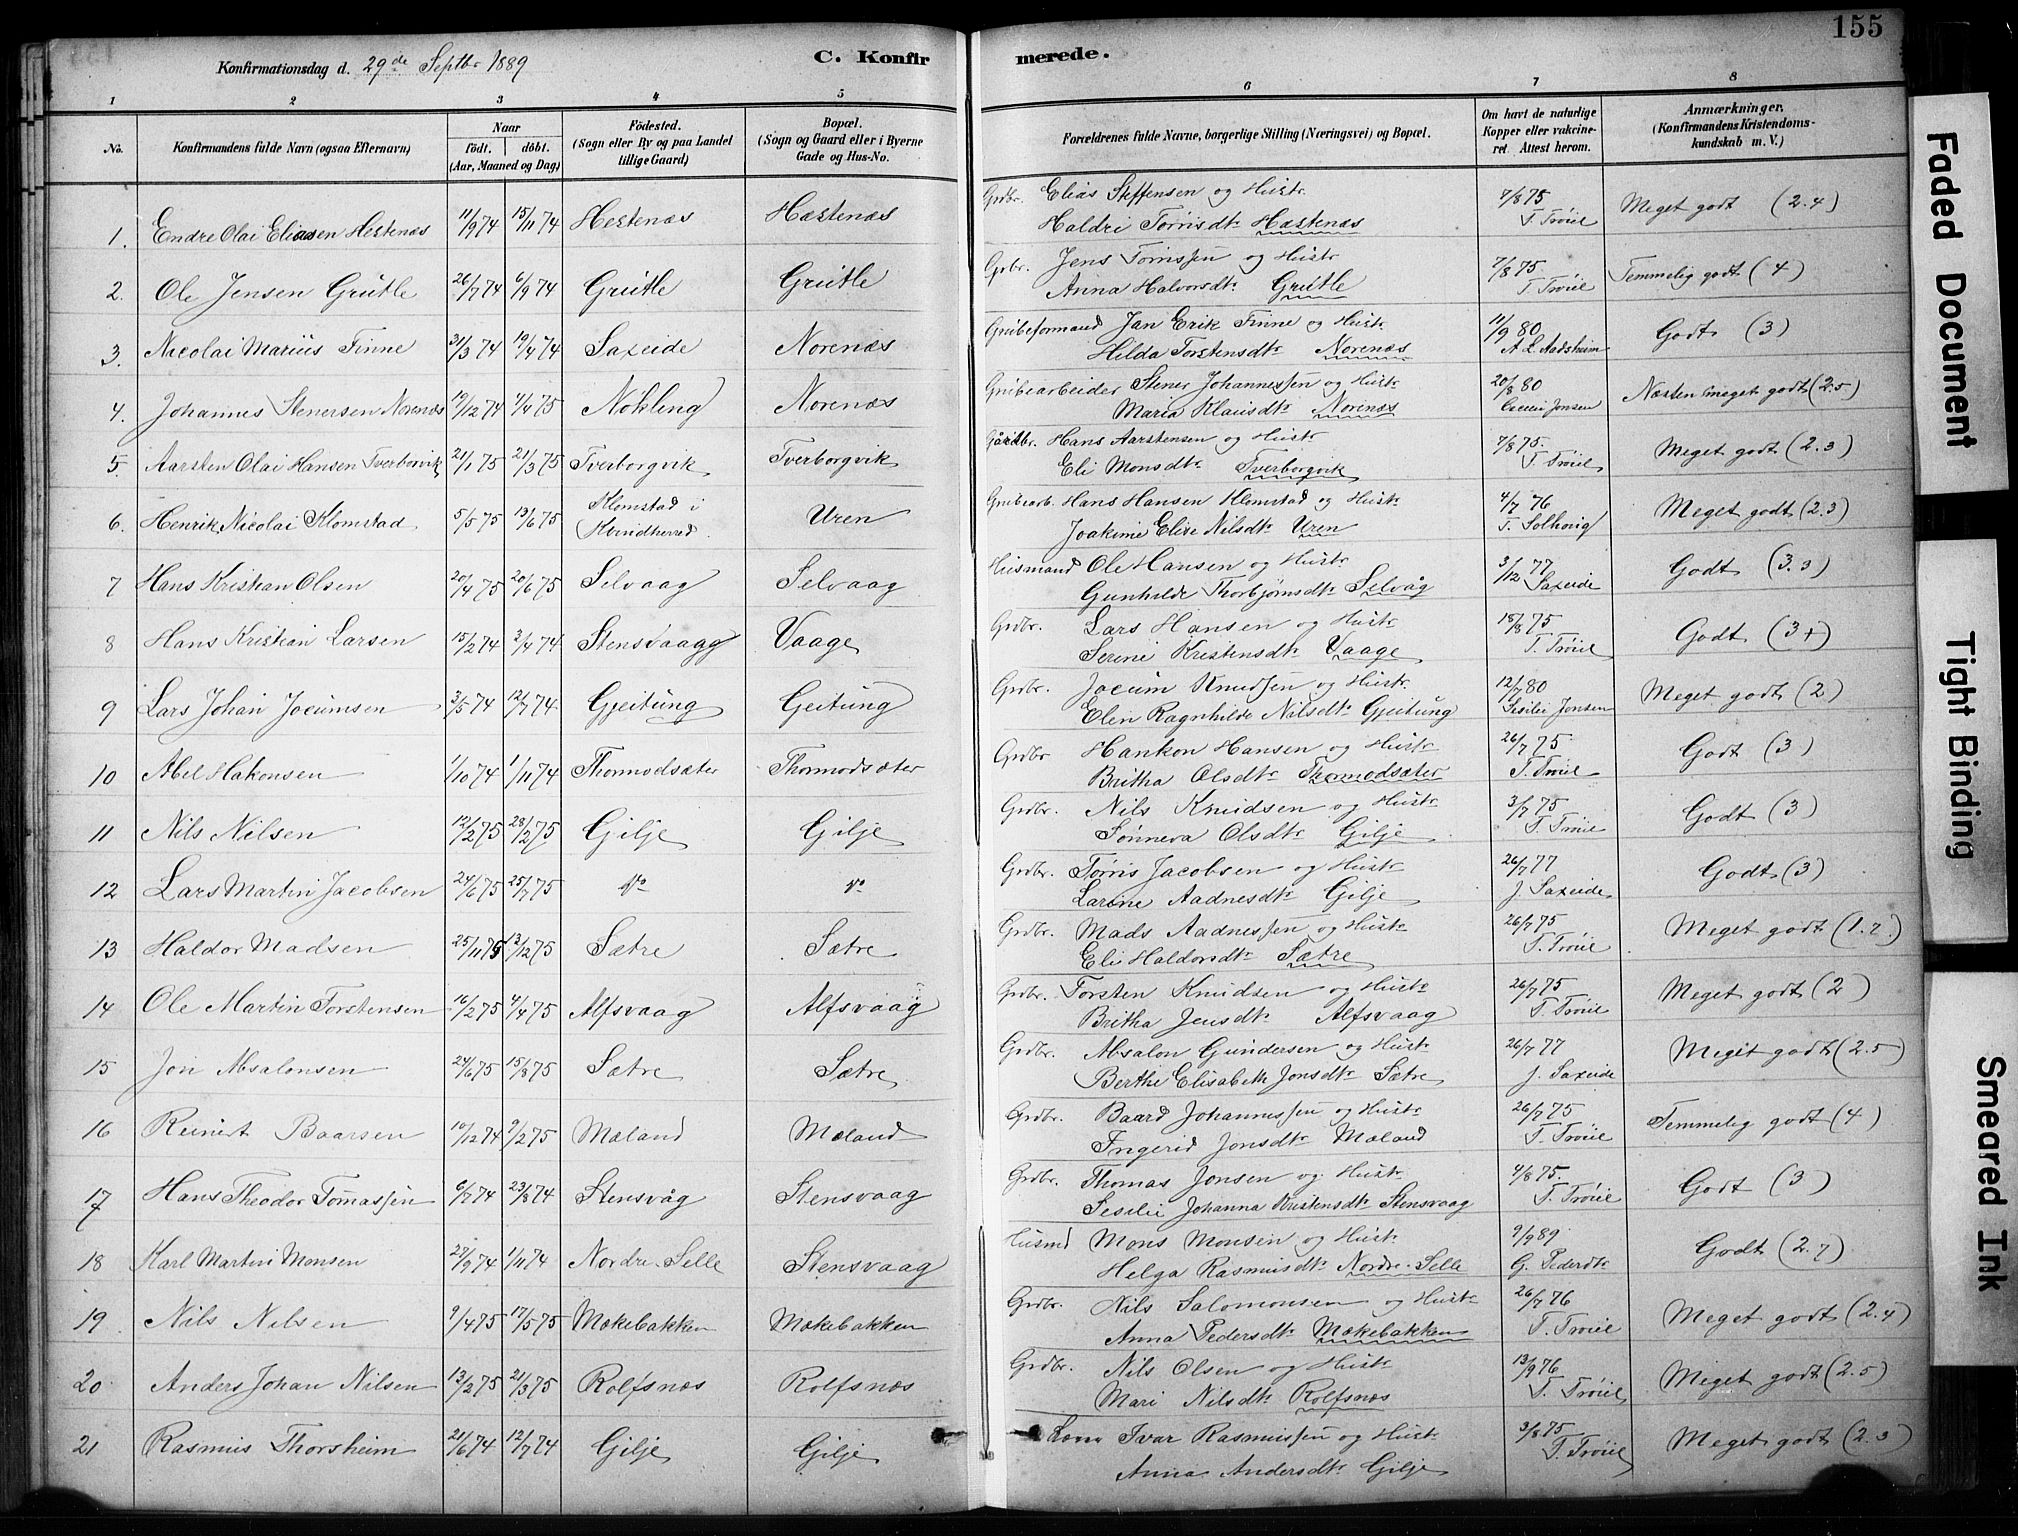 155
Konfirmationsdag d. 29de Septbr 1889 C. Konfirmerede.
1 2 3 4 5 6 7 8
No. Konfirmandens fulde Navn (ogsaa Efternavn) Naar födt. döbt. (Aar, Maaned og Dag) Födested. (Sogn eller By og paa Landet tillige Gaard) Bopæl. (Sogn og Gaard eller i Byerne Gade og Hus-No. Forældrenes fulde Navne, borgerlige Stilling (Næringsvei) og Bopæl. Om havt de naturlige Kopper eller vakcineret. Attest herom. Anmærkninger, (Konfirmandens Kristendomskundskab m. V.)
1. Endre Olai Eliasen Hestenæs 11/9 74 15/11 74 Hestenæs Hæstenæs Grdbr. Elias Steffensen og Hustr. 7/8 75 Meget godt (2.4)
Haldri Tørrisdtr Hæstenæs T. Trøie
2. Ole Jensen Grutle 26/7 74 6/9 74 Grutle Grutle Grbr. Jens Tørrissen og Hustr 7/8 75 Temmelig godt (4)
Anna Halvorsdtr Grutle T. Trøie
3. Nicolai Marius Finne 31/3 74 19/4 74 Saxeide Norenæs Grubeformand Jan Erik Finne og Hustr 11/9 80 Godt (3)
Hilda Torstensdtr Norenæs A. L. Aadsheim
4. Johannes Stenersen Norenæs 12/12 74 4/4 75 Nökling Norenæs Grubearbeider Stener Johannessen og Hustr 20/8 80 Næsten meget godt (2.5)
Maria Klausdtr Norenæs Jonsen
5. Aarsten Olai Hansen Tverborgvik 21/1 75 21/3 75 Tverborgvik Tverborgvik Hans Aarstensen og Hustr 7/8 75. Meget godt (2.3)
Eli Monsdtr Tverborgvik T. Trøie
6. Henrik Nicolai Klomstad 5/5 75 13/6 75 Klomstad i Kvindherred Uren Grubearb. Hans Hansen Klomstad og Hustr 4/7 76 Meget godt (2.3)
Joakime Elise Nilsdtr Uren T. Solhoug
7 Hans Kristian Olsen 20/4 75 20/6 75 Selvaag Selvaag Husmand Ole Hansen og Hustr 3/12 77 Godt (3.3)
Gunhilde Thorbjørnsdtr Selvåg Saxeide
8 Hans Kristian Larsen 15/2 74 3/4 74 Stensvaag Vaage Grdbr. Lars Hansen og Hustr 18/8 75 Godt (3+)
Serine Kristensdtr Vaage T. Trøie
9 Lars Johan Jocumsen 3/5 74 12/7 74 Gjeitung Geitung Grdbr. Jocum Knudsen og Hustr. 12/7 80 Meget godt (2)
Elen Ragnhilde Nilsdtr Gjeitung Sesilie Jonsen
10 Abel Hakonsen 1/10 74 1/11 74 Thormodsæter Thormodsæter Grdbr Hankon Hansen og Hustr 26/7 75 Godt (3)
Britha Olsdtr Thormodsæter T. Trøie
11 Nils Nilsen 12/2 75 28/2 75 Gilje Gilje Grdbr. Nils Knudsen og Hustr 3/7 75 Godt (3)
Sønneva Olsdtr Gilje T. Trøie
12 Lars Martin Jacobsen 24/6 75 25/7 75 do do Grdbr. Tørris Jacobsen og Hustr 26/7 77 Godt (3)
Larine Aadnesdtr Gilje J. Saxeide
13 Haldor Madsen 25/11 75 12/12 75 Sætre Sætre Grdbr. Mads Aadnessen og Hustr 26/7 75 Meget godt (1.7)
Eli Haldorsdtr Sætre T. Trøie
14 Ole Martin Torstensen 16/2 75 4/4 75 Alfsvaag Alfsvaag Grdbr. Torsten Knudsen og Hustr 26/7 75 Meget godt (2)
Britha Jensdtr Alfsvaag T. Trøie
15 Jon Absalonsen 24/6 75 15/8 75 Sætre Sætre Grdbr. Absalon Gundersen og Hustr 26/7 77 Meget godt (2.5)
Berthe Elisabeth Jonsdtr Sætre J. Saxeide
16 Reinert Baarsen 10/12 74 9/2 75 Mæland Mæland Grdbr. Baard Johannessen og Hustr 26/7 75 Temmelig godt (4)
Ingerid Jonsdtr Mæland T. Trøie
17 Hans Theodor Tomassen 6/7 74 23/8 74 Stensvåg Stensvaag Grdbr. Thomas Jonsen og Hustr 4/8 75. Godt (3)
Sesilie Johanna Kristensdtr Stensvaag T. Trøie
18 Karl Martin Monsen 27/9 74 1/11 74 Nordre-Selle Stensvaag Husmd Mons Monsen og Hustr 9/9 89 Godt (2.7)
Helga Rasmusdtr Nordre-Selle G. Pedersdtr
19 Nils Nilsen 9/4 75 17/5 75 Mækebakken Mækebakken Grdbr. Nils Salomonsen og Hustr 26/7 76 Meget godt (2.4)
Anna Pedersdtr Mækebakken T. Trøie
20 Anders Johan Nilsen 13/2 75 21/3 75 Rolfsnæs Rolfsnæs Grdbr. Nils Olsen og Hustr 13/9 76 Meget godt (2.5)
Mari Nilsdtr Rolfsnæs T. Trøie
21 Rasmus Thorsheim 21/6 74 12/7 74 Gilje Gilje Ivar Rasmussen og Hustr 3/8 75 Meget godt (2.3)
Anna Andersdtr Gilje T. Trøie
Faded Document
Tight Binding
Smeared Ink